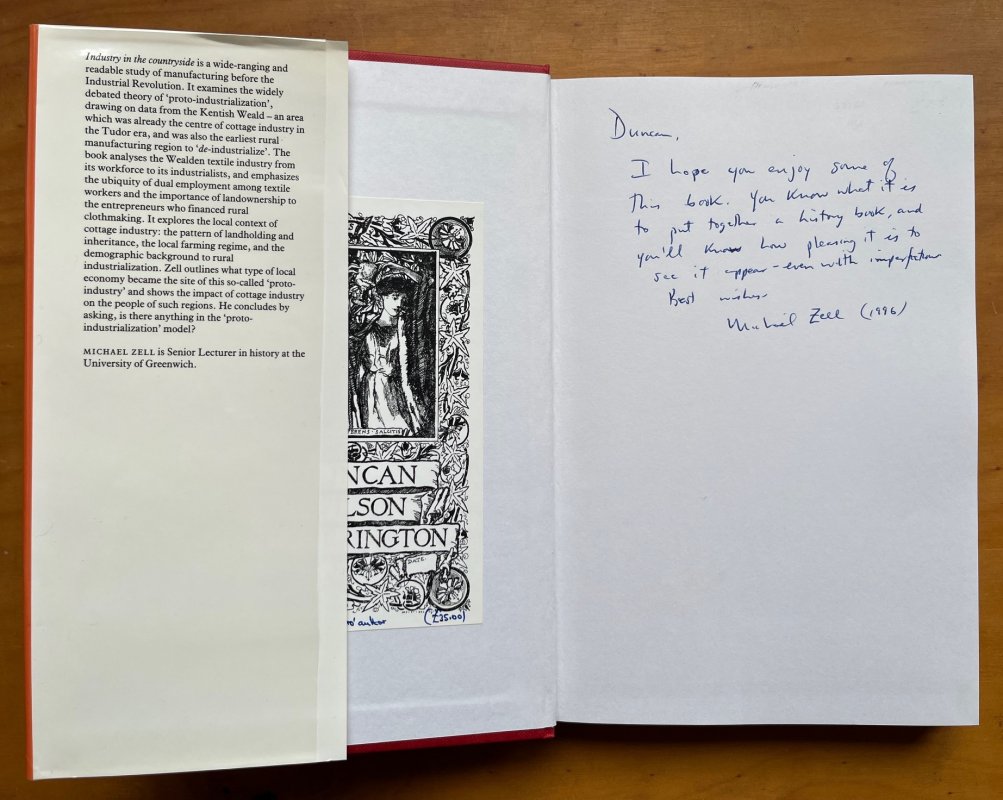 Industry in the countryside is a wide-ranging and
readable study of manufacturing before the
Industrial Revolution. It examines the widely
debated theory of ‘proto-industrialization’,
drawing on data from the Kentish Weald – an area
which was already the centre of cottage industry in
the Tudor era, and was also the earliest rural
manufacturing region to ‘de-industrialize’. The
book analyses the Wealden textile industry from
its workforce to its industrialists, and emphasizes
the ubiquity of dual employment among textile
workers and the importance of landownership to
the entrepreneurs who financed rural
clothmaking. It explores the local context of
cottage industry: the pattern of landholding and
inheritance, the local farming regime, and the
demographic background to rural
industrialization. Zell outlines what type of local
economy became the site of this so-called ‘proto-
industry’ and shows the impact of cottage industry
on the people of such regions. He concludes by
asking, is there anything in the ‘proto-
industrialization’ model?
MICHAEL ZELL is Senior Lecturer in history at the
University of Greenwich.
NCAN
LSON
RINGTON
DATE
author (£35.00)
Duncan,
I hope you enjoy some of
this book. You know what it is
to put together a history book, and
you'll know how pleasing it is to
see it appear – even with imperfections
Best wishes
Michael Zell (1996)